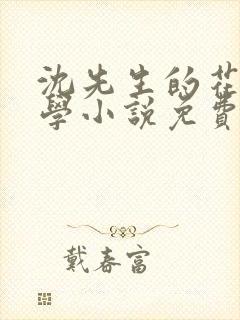 沈先生的花
學小說免費
戴春富